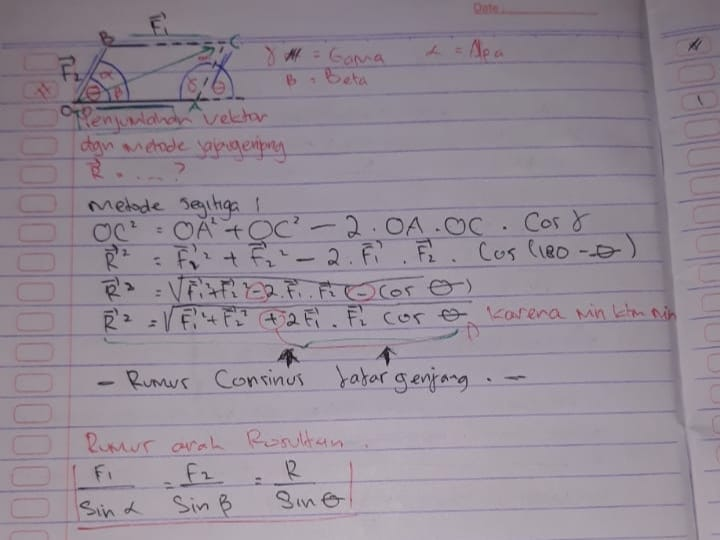 Date
B F₁ C
γ = Gama α = Alpa
β = Beta
F₂ α θ β γ θ
O A
Penjumlahan vektor
dgn metode jajargenjang
R⃗ = .... ?
metode segitiga !
OC² = OA² + OC² − 2 . OA . OC . Cos γ
R⃗² = F⃗₂² + F⃗₂² − 2 . F⃗₁ . F⃗₂ . Cos (180 − θ)
R⃗² = √F⃗₁² + F⃗₂² − 2 . F⃗₁ . F⃗₂ (− cos θ)
R⃗² = √F⃗₁² + F⃗₂² + 2 F⃗₁ . F⃗₂ cos θ karena min ktm min
− Rumus Consinus Jajar genjang . −
Rumus arah Rosultan .
F₁ / Sin α = F₂ / Sin β = R / Sin θ